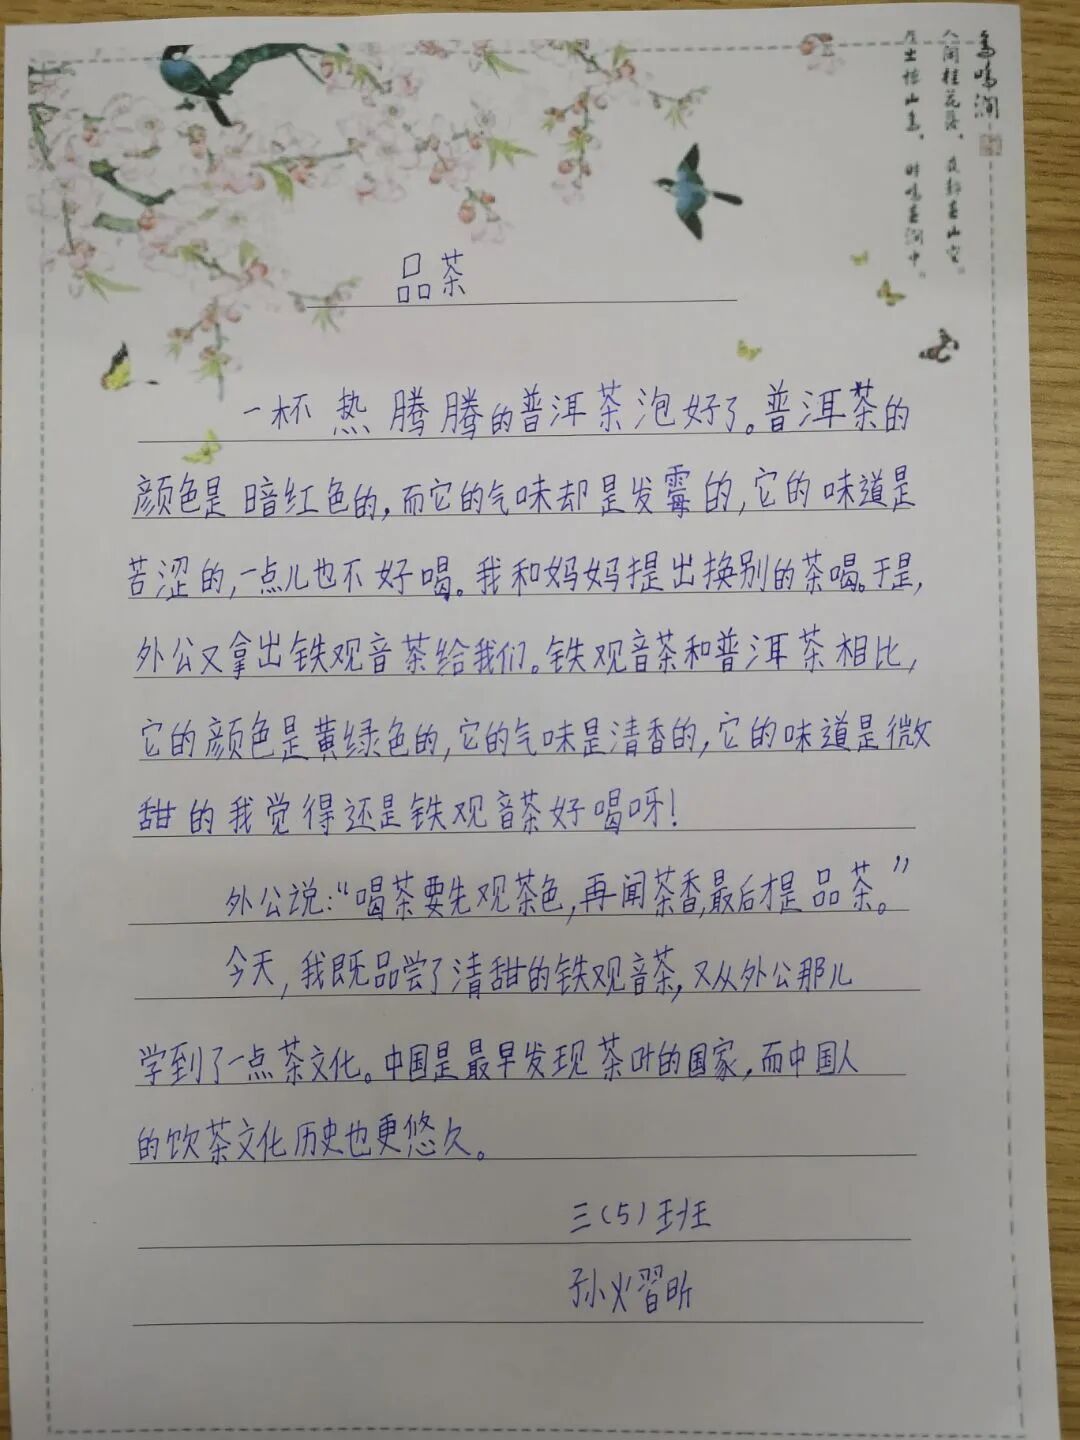 鸟鸣涧
人闲桂花落，夜静春山空。
月出惊山鸟，时鸣春涧中。
品茶
一杯热腾腾的普洱茶泡好了。普洱茶的
颜色是暗红色的，而它的气味却是发霉的，它的味道是
苦涩的，一点儿也不好喝。我和妈妈提出换别的茶喝。于是，
外公又拿出铁观音茶给我们。铁观音茶和普洱茶相比，
它的颜色是黄绿色的，它的气味是清香的，它的味道是微
甜的我觉得还是铁观音茶好喝呀！
外公说：“喝茶要先观茶色，再闻茶香，最后才是品茶。”
今天，我既品尝了清甜的铁观音茶，又从外公那儿
学到了一点茶文化。中国是最早发现茶叶的国家，而中国人
的饮茶文化历史也更悠久。
三（5）班
孙熠昕